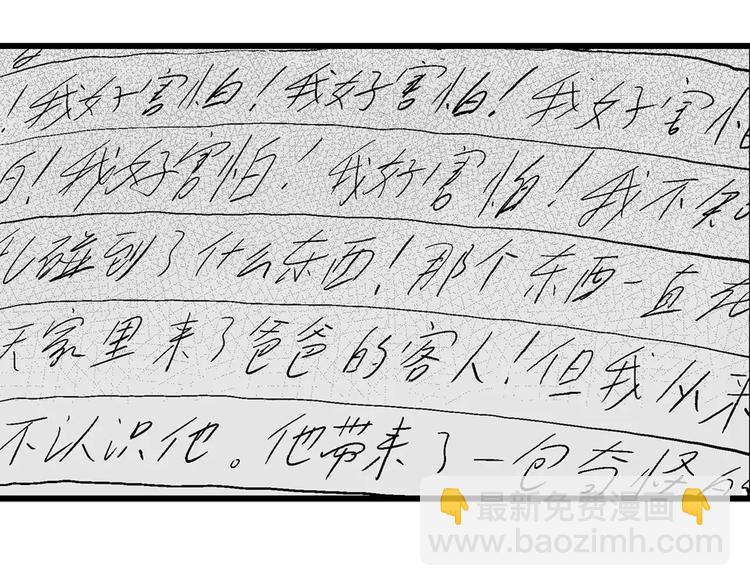 ！我好害怕！我好害怕！我好害怕
怕！我好害怕！我好害怕！我不知
碰到了什么东西！那个东西一直在
天家里来了爸爸的客人！但我从来
不认识他。他带来了一包奇怪的
👇最新免费漫画👇
www.baozimh.com